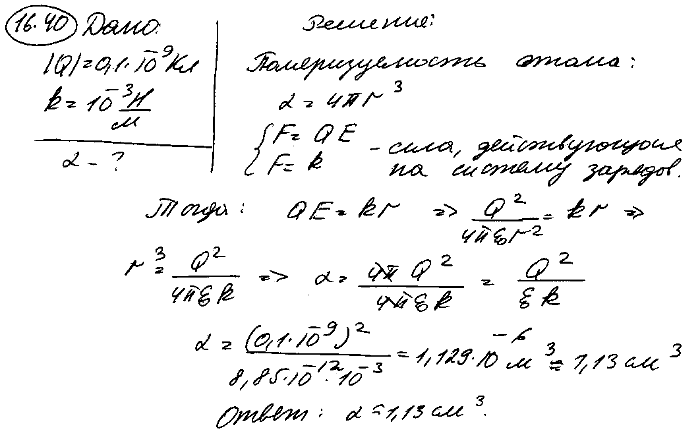 16.40 Дано:
|Q|=0,1·10⁻⁹ Кл
k=10⁻³ Н/м
α - ?
Решение:
Поляризуемость атома:
α = 4πr³
{F=QE
{F=k - сила, действующая на систему зарядов.
Тогда: QE=kr => Q²/4πε₀r² = kr =>
r³ = Q²/4πε₀k => α = 4πQ²/4πε₀k = Q²/ε₀k
α = (0,1·10⁻⁹)²/8,85·10⁻¹²·10⁻³ = 1,129·10⁻⁶ м³ = 1,13 см³
Ответ: α=1,13 см³.